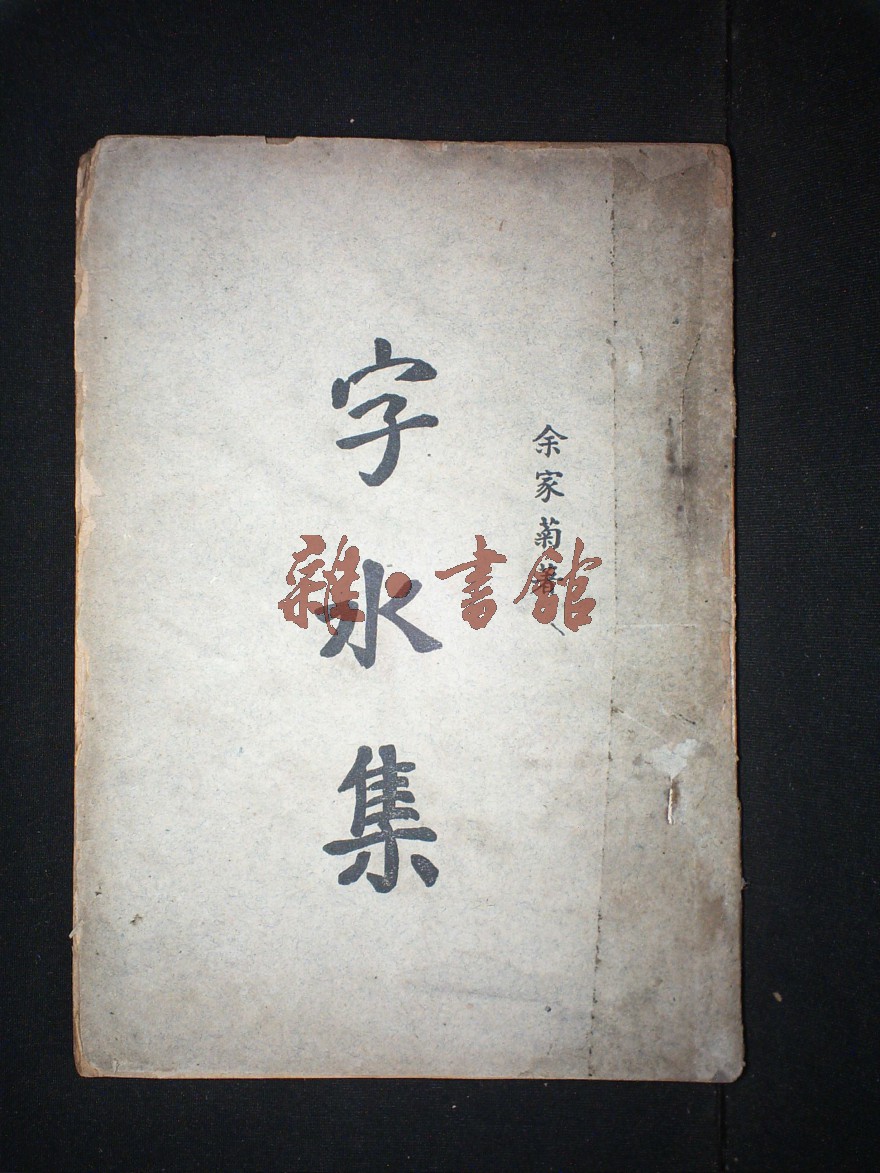 余家菊著
字水集
雜·書館